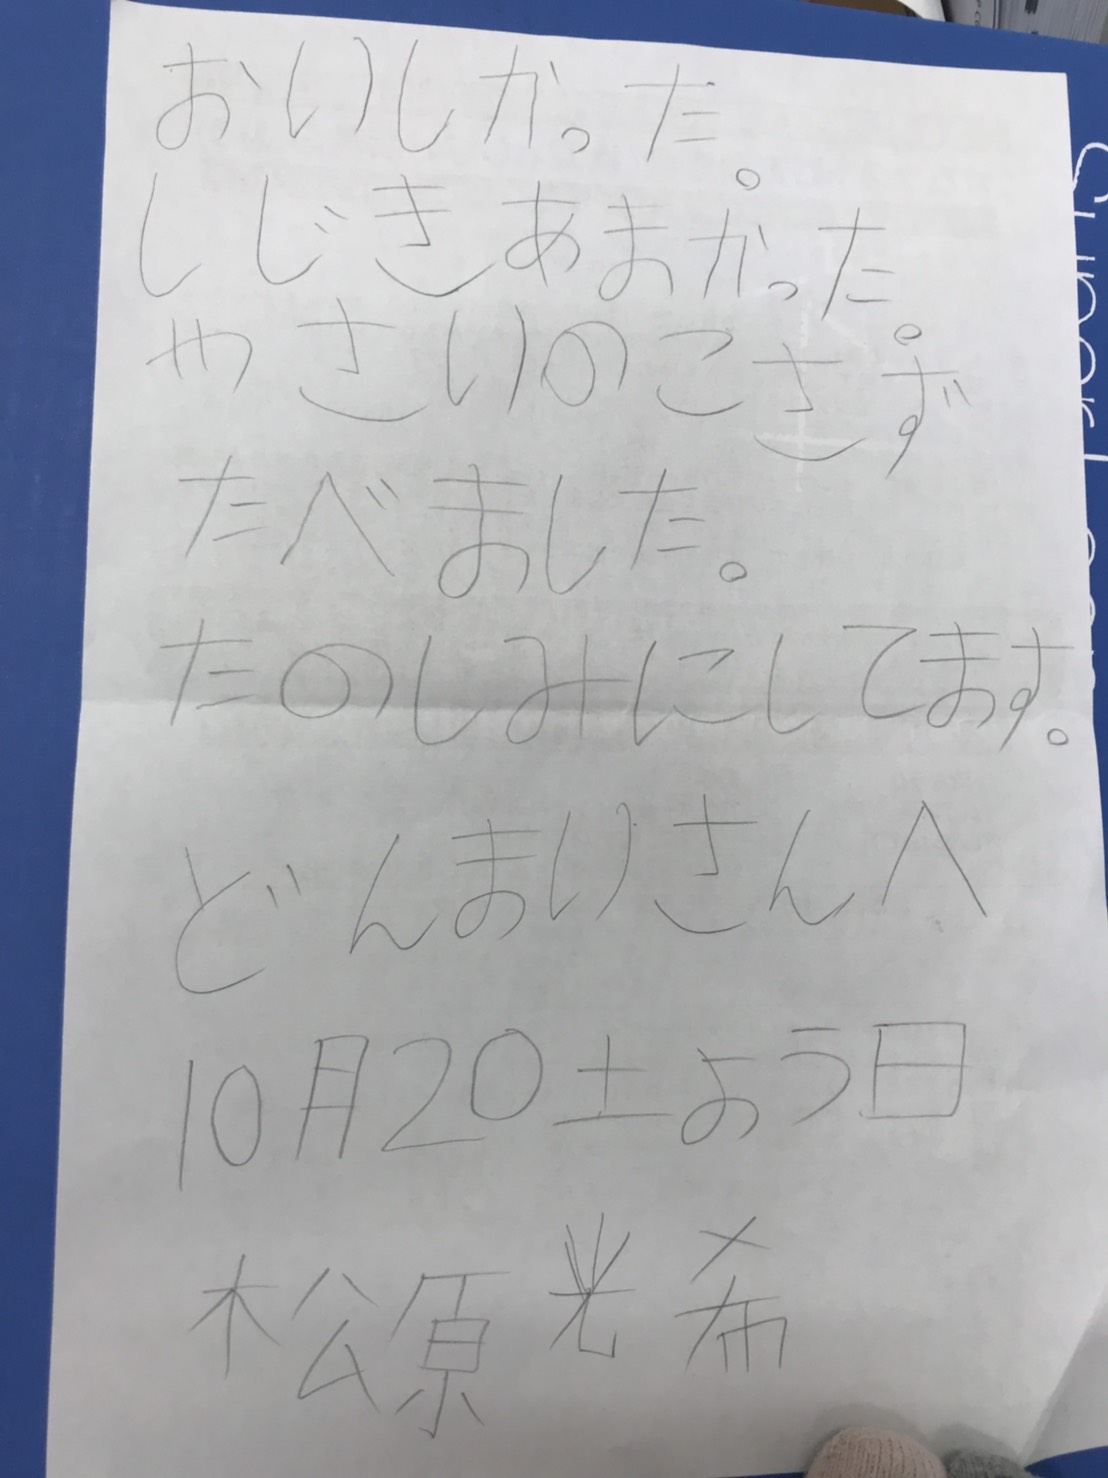 おいしかった。
しじきあまかった。
やさいのこさず
たべました。
たのしみにしてます。
どんまいさんへ
10月20土よう日
松原光希